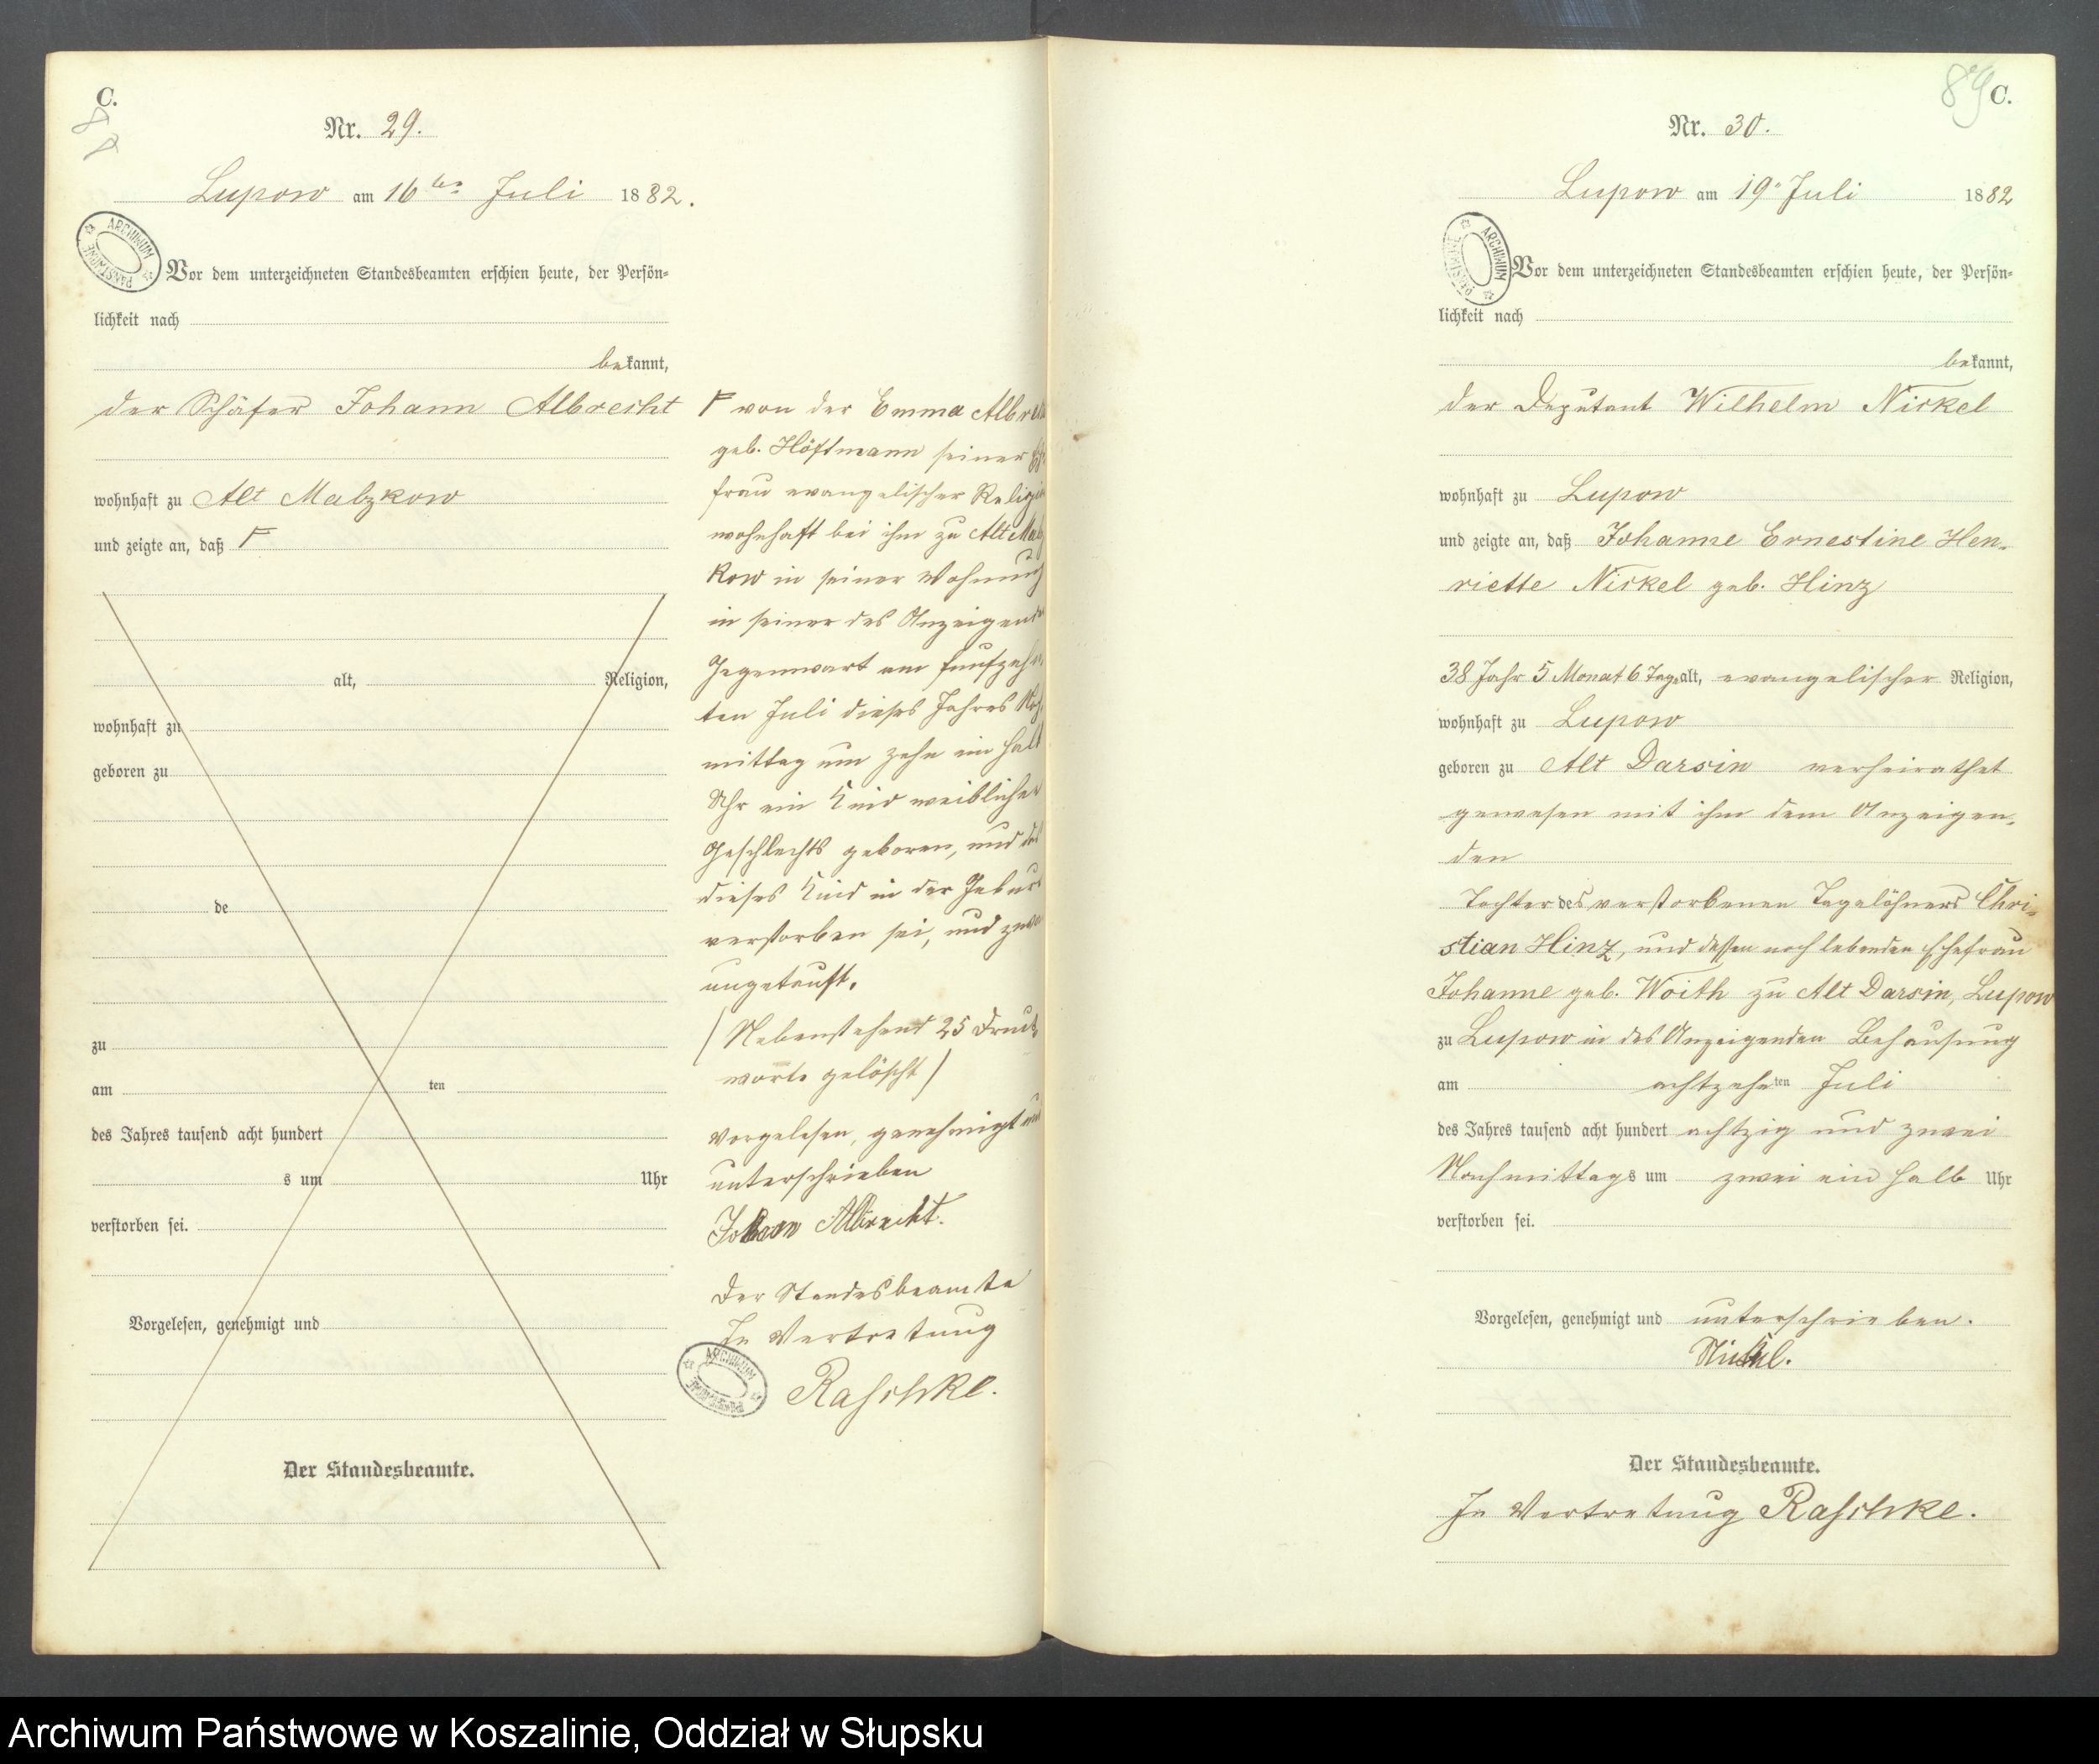 C.
88
Nr. 29.
Lupow am 16ten Juli 1882.
ARCHIWUM PAŃSTWOWE
Vor dem unterzeichneten Standesbeamten erschien heute, der Persön=
lichkeit nach
bekannt,
der Schäfer Johann Albrecht
wohnhaft zu Alt Malzkow
und zeigte an, daß Γ
alt, Religion,
wohnhaft zu
geboren zu
de
zu
am ten
des Jahres tausend acht hundert
s um Uhr
verstorben sei.
Vorgelesen, genehmigt und
Der Standesbeamte.
Γ von der Emma Albrecht
geb. Höftmann seiner Ehe
frau evangelischer Religion
wohnhaft bei ihm zu Alt Malz
kow in seiner Wohnung
in seiner des Anzeigenden
Gegenwart am funfzehn
ten Juli dieses Jahres
mittag um zehn ein halb
Uhr ein Kind weiblichen
Geschlechts geboren, und daß
dieses Kind in der Geburt
verstorben sei, und zwar
ungetauft.
(Nebenstehend 25 Druck
worte gelöscht)
Vorgelesen, genehmigt und
unterschrieben
Johann Albrecht.
Der Standesbeamte
In Vertretung
ARCHIWUM PAŃSTWOWE
Raschke.
89
C.
Nr. 30.
Lupow am 19ten Juli 1882
ARCHIWUM PAŃSTWOWE
Vor dem unterzeichneten Standesbeamten erschien heute, der Persön=
lichkeit nach
bekannt,
der Deputant Wilhelm Nickel
wohnhaft zu Lupow
und zeigte an, daß Johanne Ernestine Hen=
riette Nickel geb. Hinz
38 Jahr 5 Monat 6 Tage alt, evangelischer Religion,
wohnhaft zu Lupow
geboren zu Alt Darsin verheirathet
gewesen mit ihm dem Anzeigen=
den
Tochter des verstorbenen Tagelöhners Chri=
stian Hinz, und dessen noch lebenden Ehefrau
Johanne geb. Woith zu Alt Darsin, Lupow
zu Lupow in des Anzeigenden Behausung
am achtzehnten Juli
des Jahres tausend acht hundert achtzig und zwei
Nachmittags um zwei ein halb Uhr
verstorben sei.
Vorgelesen, genehmigt und unterschrieben.
Nickel.
Der Standesbeamte.
In Vertretung Raschke.
Archiwum Państwowe w Koszalinie, Oddział w Słupsku